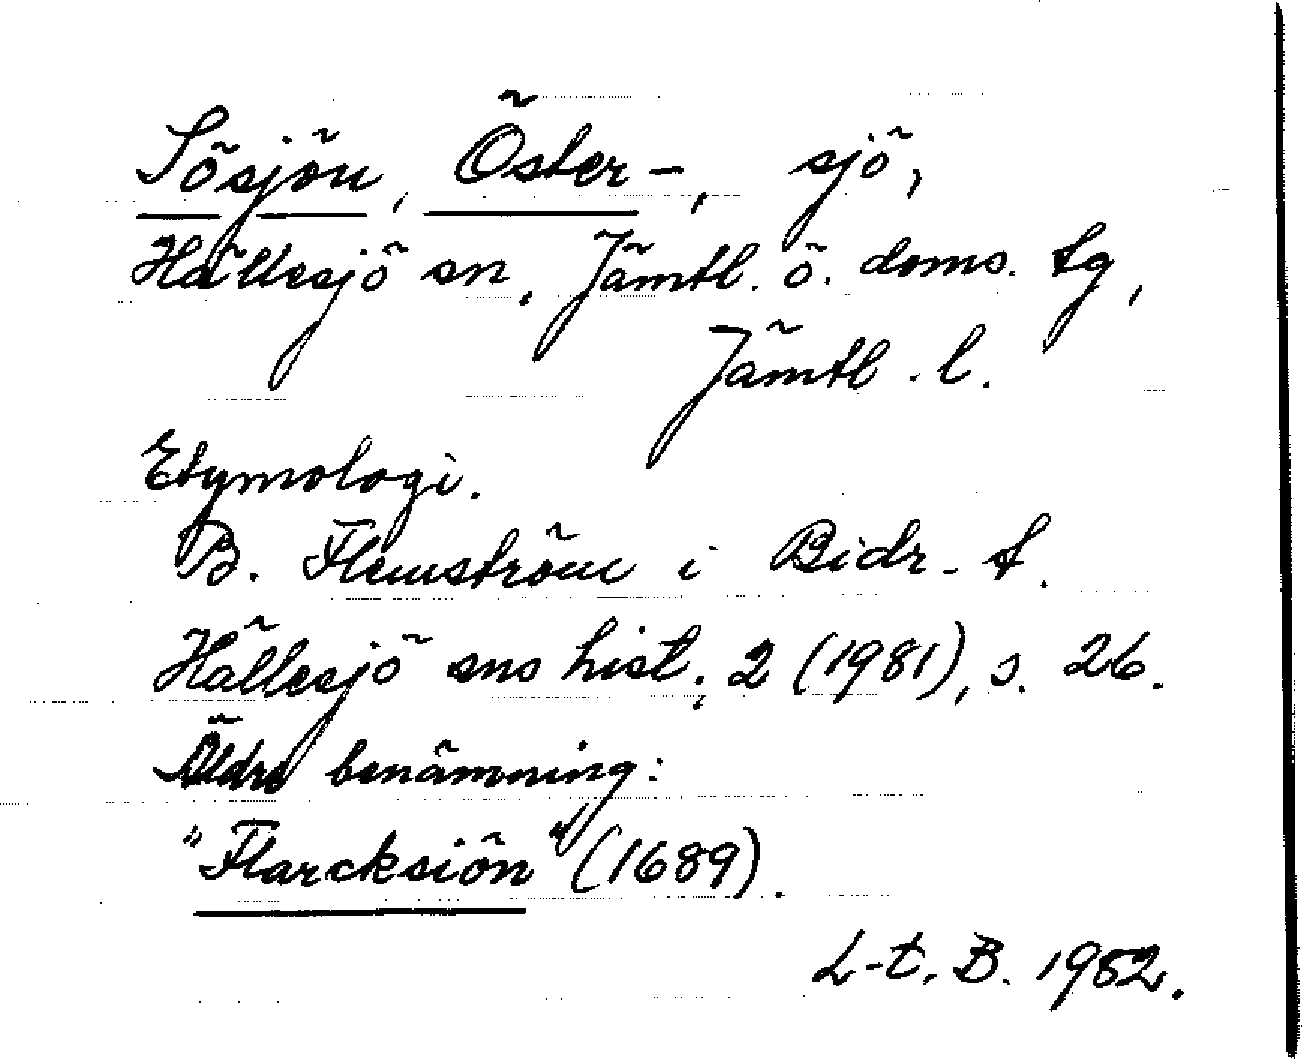 Sösjön, Öster-, sjö,
Hällesjö sn, Jämtl. ö. doms. tg,
Jämtl. l.
Etymologi.
B. Flemström i Bidr. t.
Hällesjö sns hist; 2 (1981), s. 26.
Äldre benämning:
"Flarcksiön" (1689).
L-t. B. 1982.